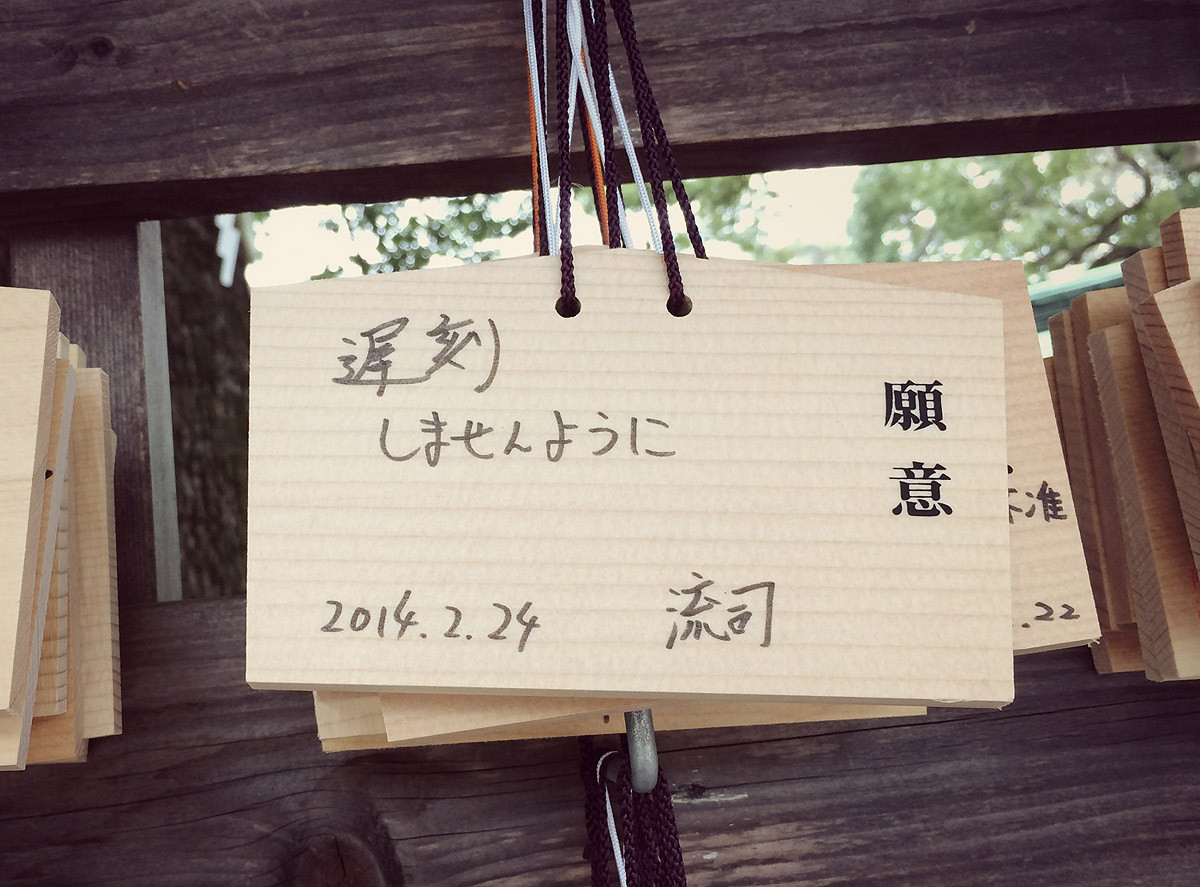 願意
遅刻
しませんように
2014.2.24 流司
准
.22